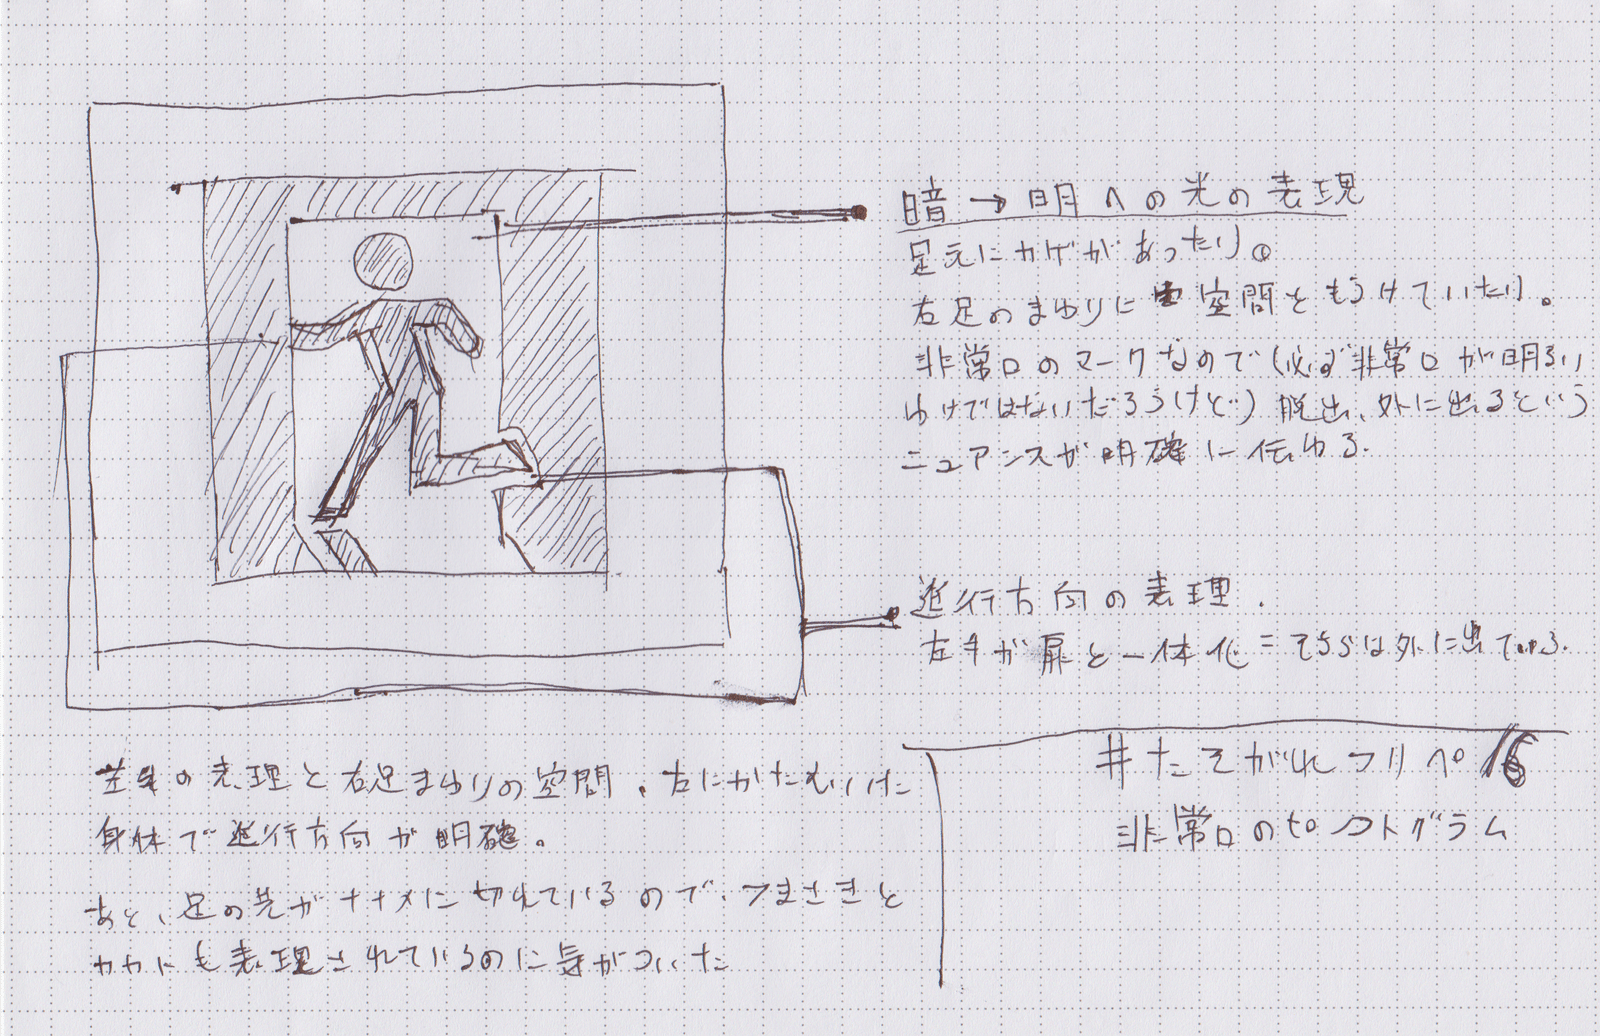 暗→明への光の表現
足元にカゲがあったり。
右足のまわりに空間をもうけていたり。
非常口のマークなので(必ず非常口が明るい
わけではないだろうけど)脱出、外に出るという
ニュアンスが明確に伝わる.
進行方向の表現.
左手が扉と一体化=そちらは外に出ている.
左手の表現と右足まわりの空間、左にかたむいた
身体で進行方向が明確。
あと、足の先がナナメに切れているので、つまさきと
カカトも表現されているのに気がついた
#たそがれフリペ16
非常口のピクトグラム